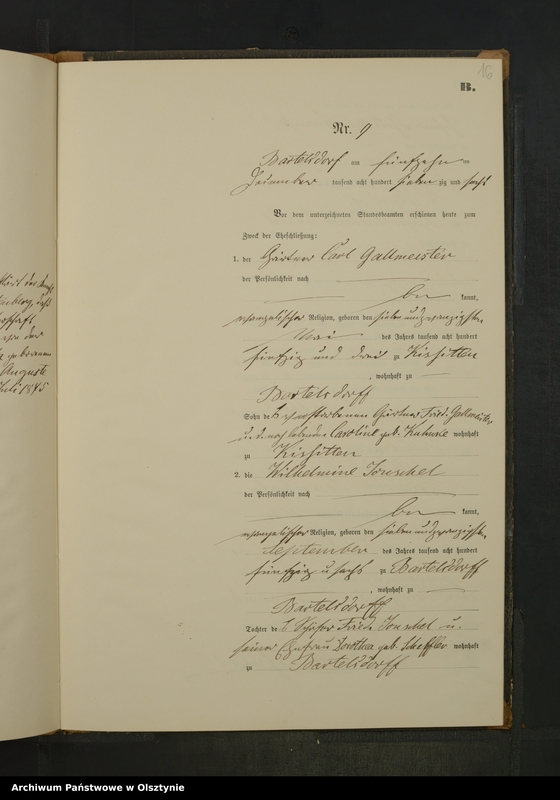 16
B.
Nr. 9
Bartelsdorf am fünfzehnten
Dezember tausend acht hundert sieben zig und sechs
Vor dem unterzeichneten Standesbeamten erschienen heute zum
Zweck der Eheschließung:
1. der Gärtner Carl Gallmeister
der Persönlichkeit nach
be kannt,
evangelischer Religion, geboren den sieben und zwanzigsten
Mai des Jahres tausend acht hundert
fünfzig und drei zu Kissitten
, wohnhaft zu
Bartelsdorff
Sohn des verstorbenen Gärtner Fried. Gallmeister
u. d. noch lebenden Caroline geb. wohnhaft
zu Kissitten
2. die Wilhelmine
der Persönlichkeit nach
be kannt,
evangelischer Religion, geboren den sieben und zwanzigsten
September des Jahres tausend acht hundert
fünfzig u sechs zu Bartelsdorff
, wohnhaft zu
Bartelsdorff
Tochter des Schäfer Friedr. u.
seiner Ehefrau Dorothea geb. Scheffler wohnhaft
zu Bartelsdorff
der
Auguste
Juli 1875
Archiwum Państwowe w Olsztynie